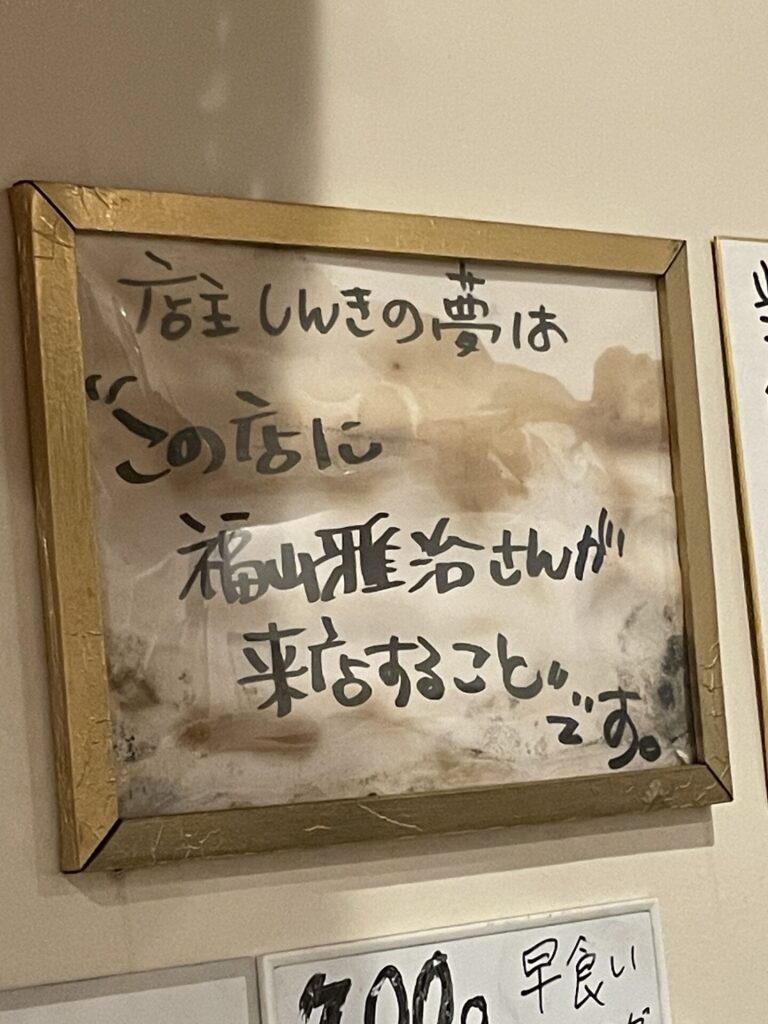 店主しんきの夢は
"この店に
福山雅治さんが
来店すること"
です。
700g
早食い